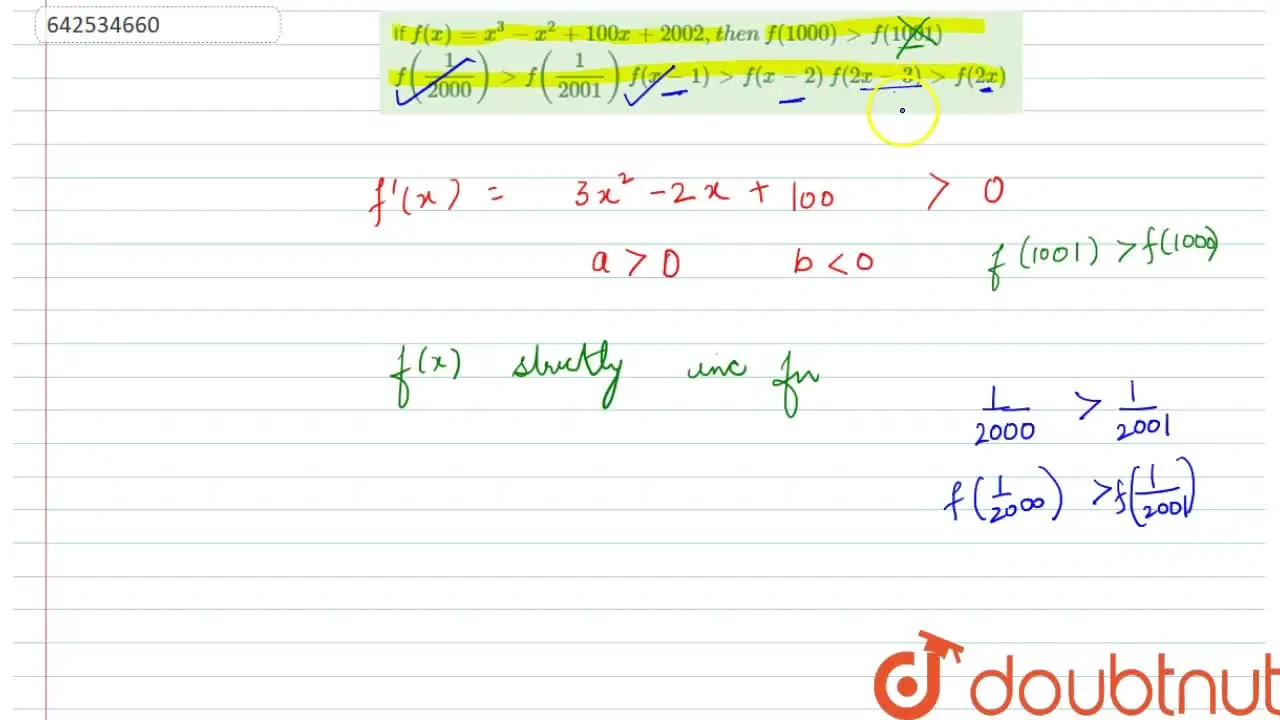 642534660
If f(x) = x³ − x² + 100x + 2002, then f(1000) > f(1001)
f(1/2000) > f(1/2001) f(x − 1) > f(x − 2) f(2x − 3) > f(2x)
f'(x) = 3x² − 2x + 100 > 0
a > 0 b < 0 f(1001) > f(1000)
f(x) strictly inc fn
1/2000 > 1/2001
f(1/2000) > f(1/2001)
doubtnut